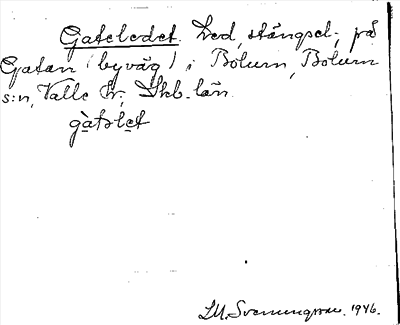 Gateledet. Led, stängsel, på
Gatan (byväg) i Bolum, Bolum
s:n, Valle hr, Skb. län.
gàtəlet
LM. Svenungsson. 1946.